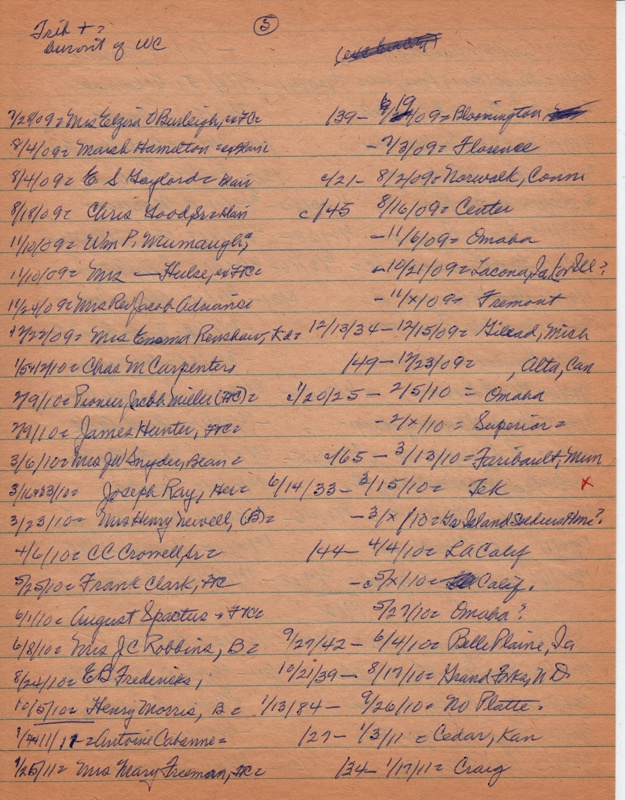 Trib + 2
(5)
of WC
7/28/09 = Mrs Elzina D Burleigh, ex FC = /39 - 8/19/09 = Bloomington
8/4/09 = Marsh Hamilton = ex Blair - 7/3/09 = Florence
8/4/09 = E S Gaylord = Blair c/21 - 8/2/09 = Norwalk, Conn
8/18/09 = Chris Good Sr = Blair c/45 8/16/09 = Center
11/10/09 = Wm P. Mumaugh, - 11/6/09 = Omaha
11/10/09 = Mrs — Hulse, ex FC = - 10/21/09 = Lacona, Ia (or Ill?
11/24/09 = Mrs Rev Jacob Adriance - 11/x/09 = Fremont
12/22/09 = Mrs Emma Renshaw, Kd = 12/13/34 - 12/15/09 = Gilead, Mich
1/5+12/10 = Chas M Carpenter, /49 - 12/23/09 = , Alta, Can
2/9/10 = Pioneer Jacob Miller (FC) = c/20/25 - 2/5/10 = Omaha
2/9/10 = James Hunter, FC = - 2/x/10 = Superior =
3/6/10 = Mrs JW Snyder, Bean = c/65 - 3/13/10 = Faribault, Minn
3/16+23/10 = Joseph Ray, Her = 6/14/33 - 3/15/10 = Tek x
3/23/10 = Mrs Henry Newell, (B) = - 3/x/13 = Gr Island Soldiers Home?
4/6/10 = CC Crowell, Sr = /44 - 4/4/10 = LA Calif
5/25/10 = Frank Clark, FC - c5/x/10 = Calif.
6/1/10 = August Spactus + FC = 5/27/10 = Omaha?
6/8/10 = Mrs JC Robbins, B = 9/27/42 - 6/4/10 = Belle Plaine, Ia
8/24/10 = EB Fredericks, 10/21/39 - 8/17/10 = Grand Forks, N D.
10/5/10 = Henry Morris, B = 1/13/84 - 9/26/10 = No Platte.
1/4+11/11 = Antoine Cabanne = /27 - 1/3/11 = Cedar, Kan
1/25/11 = Mrs Mary Freeman, FC = /34 - 1/17/11 = Craig